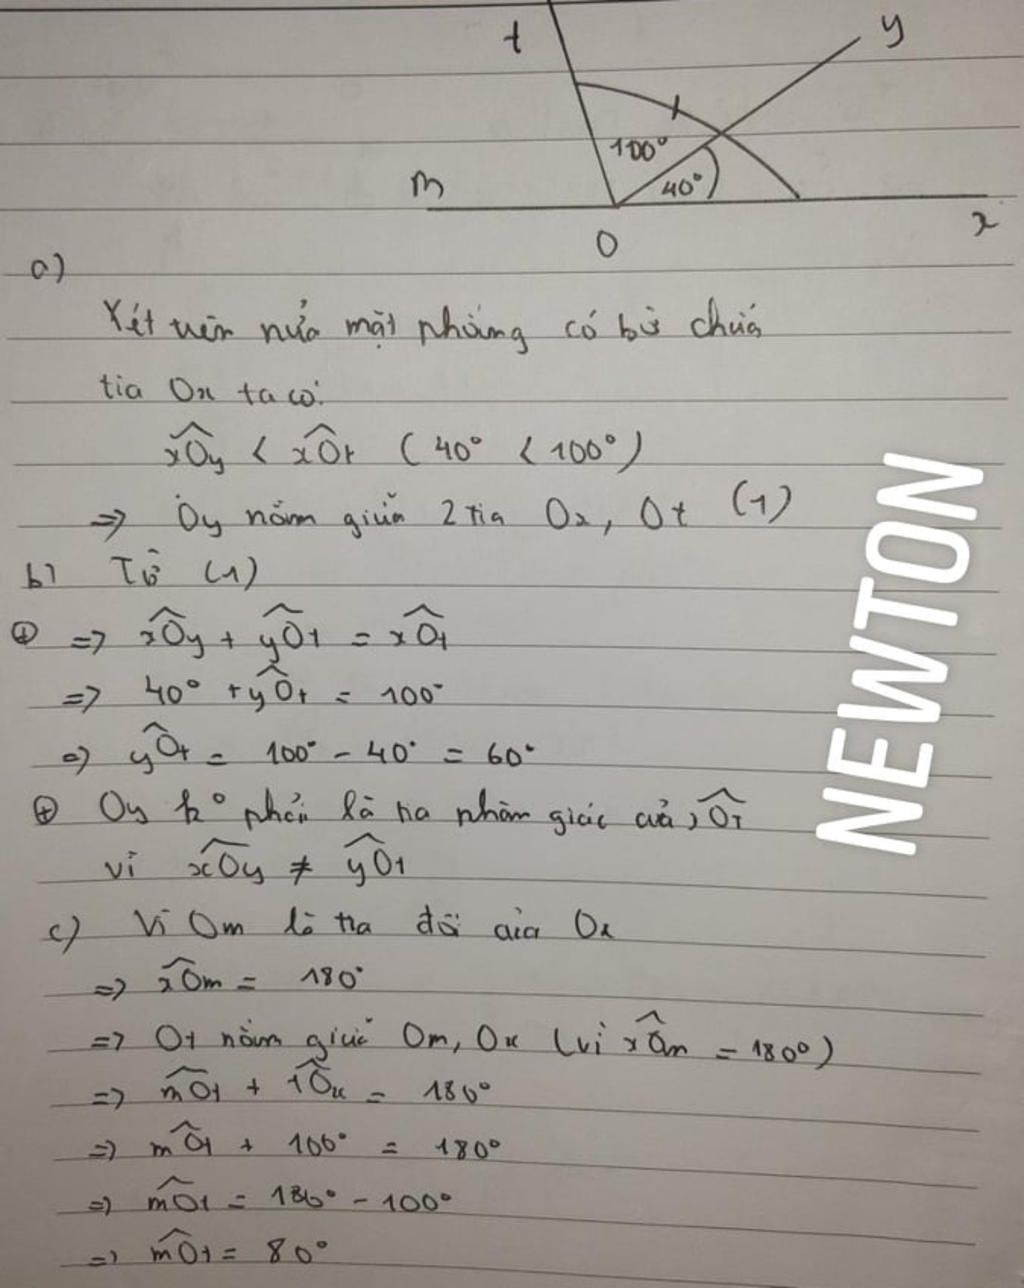 t
y
100°
40°
m
O
x
a)
Xét trên nửa mặt phẳng có bờ chứa
tia Ox ta có:
xÔy < xÔt (40° < 100°)
=> Oy nằm giữa 2 tia Ox, Ot (1)
b) Từ (1)
⊕ => xÔy + yÔt = xÔt
=> 40° + yÔt = 100°
=> yÔt = 100° - 40° = 60°
⊕ Oy k° phải là tia phân giác của xÔt
vì xÔy ≠ yÔt
c) Vì Om là tia đối của Ox
=> xÔm = 180°
=> Ot nằm giữa Om, Ox (vì xÔm = 180°)
=> mÔt + tÔx = 180°
=> mÔt + 100° = 180°
=> mÔt = 180° - 100°
=> mÔt = 80°
NEWTON